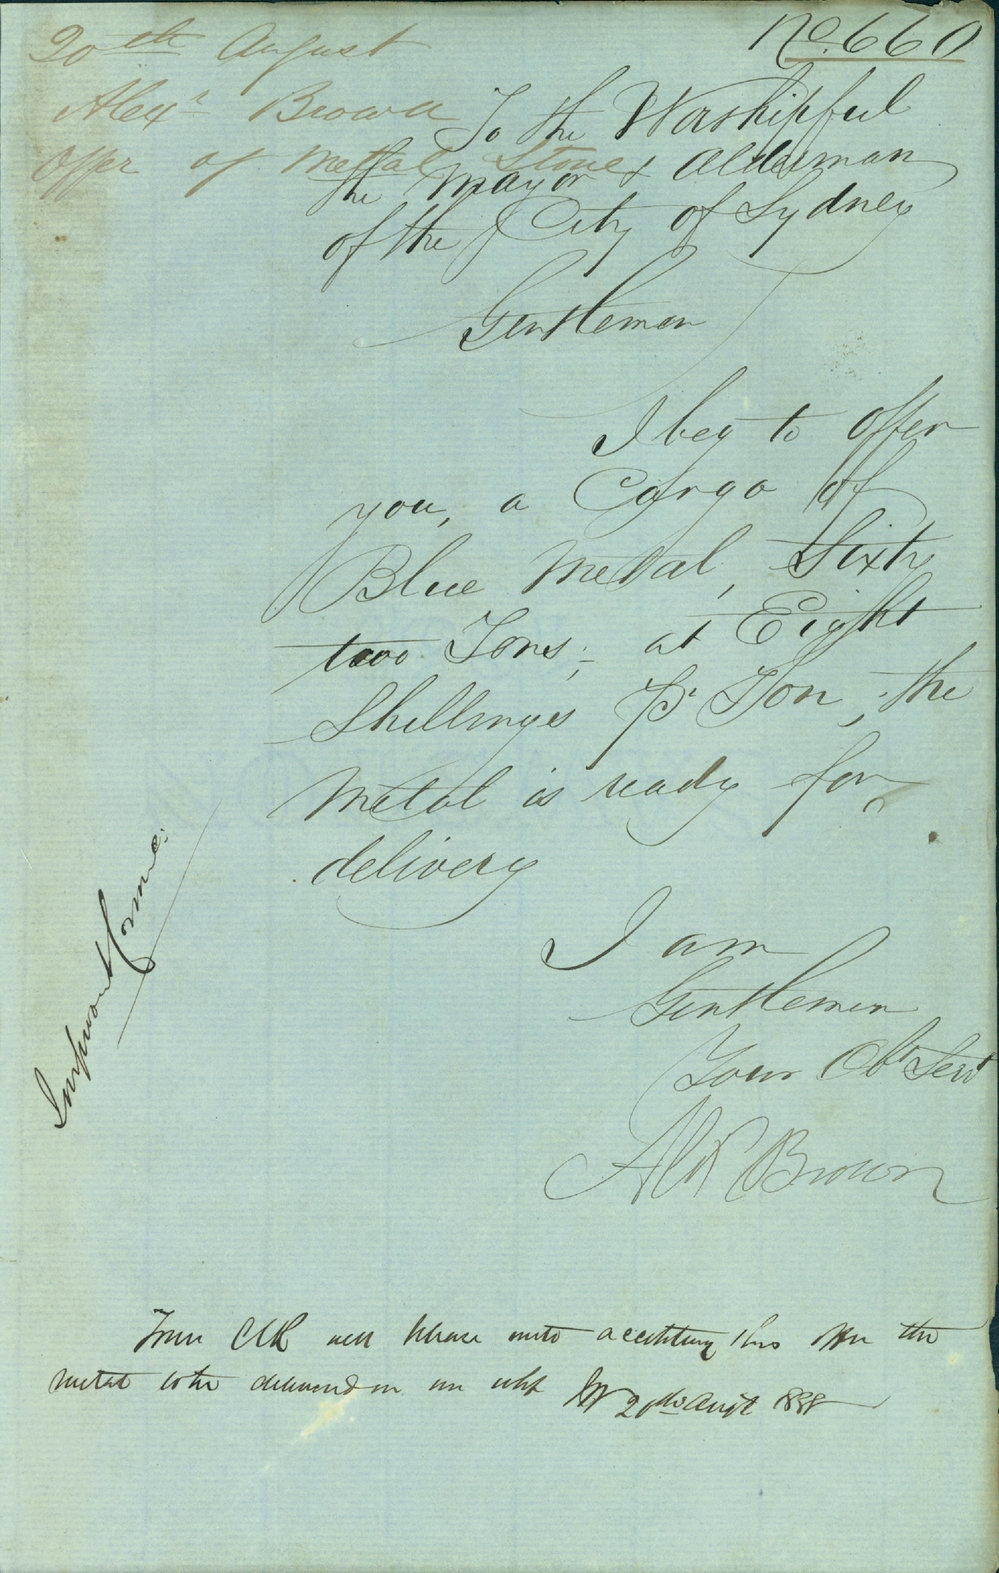 No. 660
20th August
Alexr Brown
Offer of Metal Stone
To the Worshipful
the Mayor & Alderman
of the City of Sydney
Gentlemen
I beg to offer
you, a Cargo of
Blue Metal, Sixty
two Tons, at Eight
Shillings pr Ton, the
Metal is ready for
delivery
I am
Gentlemen
Your Obt Servt
Alexr Brown
Improvemt Comme.
Town Clk will please write accepting this offer the
metal to be delivered on our whf 20th Augt